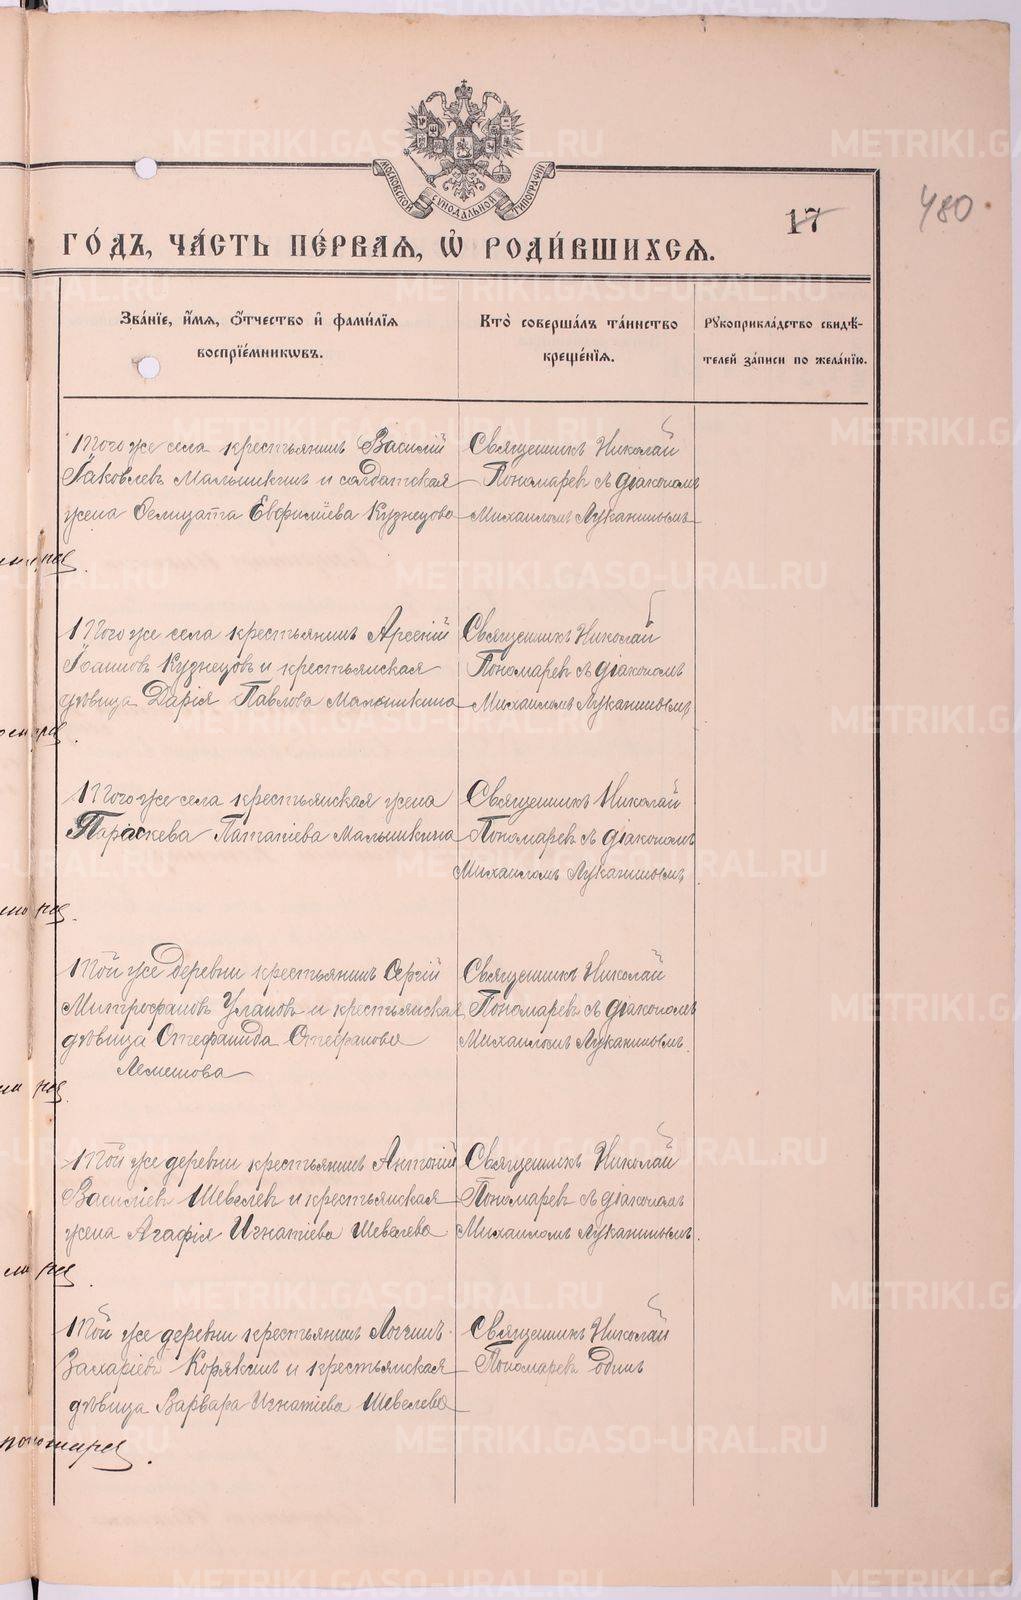 МОСКОВСКОЙ СѴНОДАЛЬНОЙ ТИПОГРАФІИ
17
480
ГО́ДЪ, ЧА́СТЬ ПЕ́РВАѦ, Ѡ҆ РОДИ́ВШИХСѦ.
Зва́нїе, и҆́мѧ, ѻ҆́тчество и҆ фами́лїѧ
воспрїе́мникѡвъ.
Кто̀ соверша́лъ та́инство
креще́нїѧ.
Рꙋкоприкла́дство свидѣ́-
телей за́писи по жела́нїю.
Того же села крестьянинъ Василій
Іаковлевъ Малышкинъ и солдатская
жена Фелицата Евфиміева Кузнецова
Священникъ Николай
Пономаревъ съ діакономъ
Михаиломъ Луканинымъ
Того же села крестьянинъ Арсеній
Іоанновъ Кузнецовъ и крестьянская
дѣвица Дарія Павлова Малышкина
Священникъ Николай
Пономаревъ съ діакономъ
Михаиломъ Луканинымъ
Того же села крестьянская жена
Параскева Малышкина
Священникъ Николай
Пономаревъ съ діакономъ
Михаиломъ Луканинымъ.
Той же деревни крестьянинъ Сергій
Митрофановъ Улановъ и крестьянская
дѣвица Стефанида Стефанова
Лемешова
Священникъ Николай
Пономаревъ съ діакономъ
Михаиломъ Луканинымъ.
Той же деревни крестьянинъ Антоній
Василіевъ Шевелевъ и крестьянская
жена Агафія Игнатіева Шевелева
Священникъ Николай
Пономаревъ съ діакономъ
Михаиломъ Луканинымъ.
Той же деревни крестьянинъ Логгинъ
Захаріевъ Корякинъ и крестьянская
дѣвица Варвара Игнатіева Шевелева
Священникъ Николай
Пономаревъ одинъ
METRIKI.GASO-URAL.RU